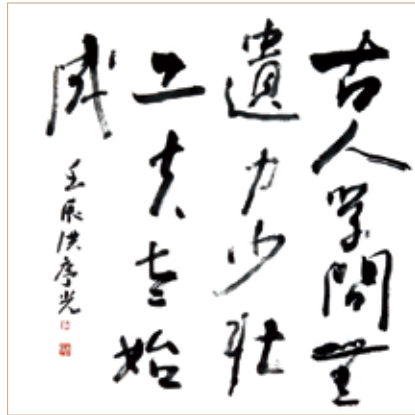 古人学問無
遺力少壮
工夫老始
成
壬辰洪光